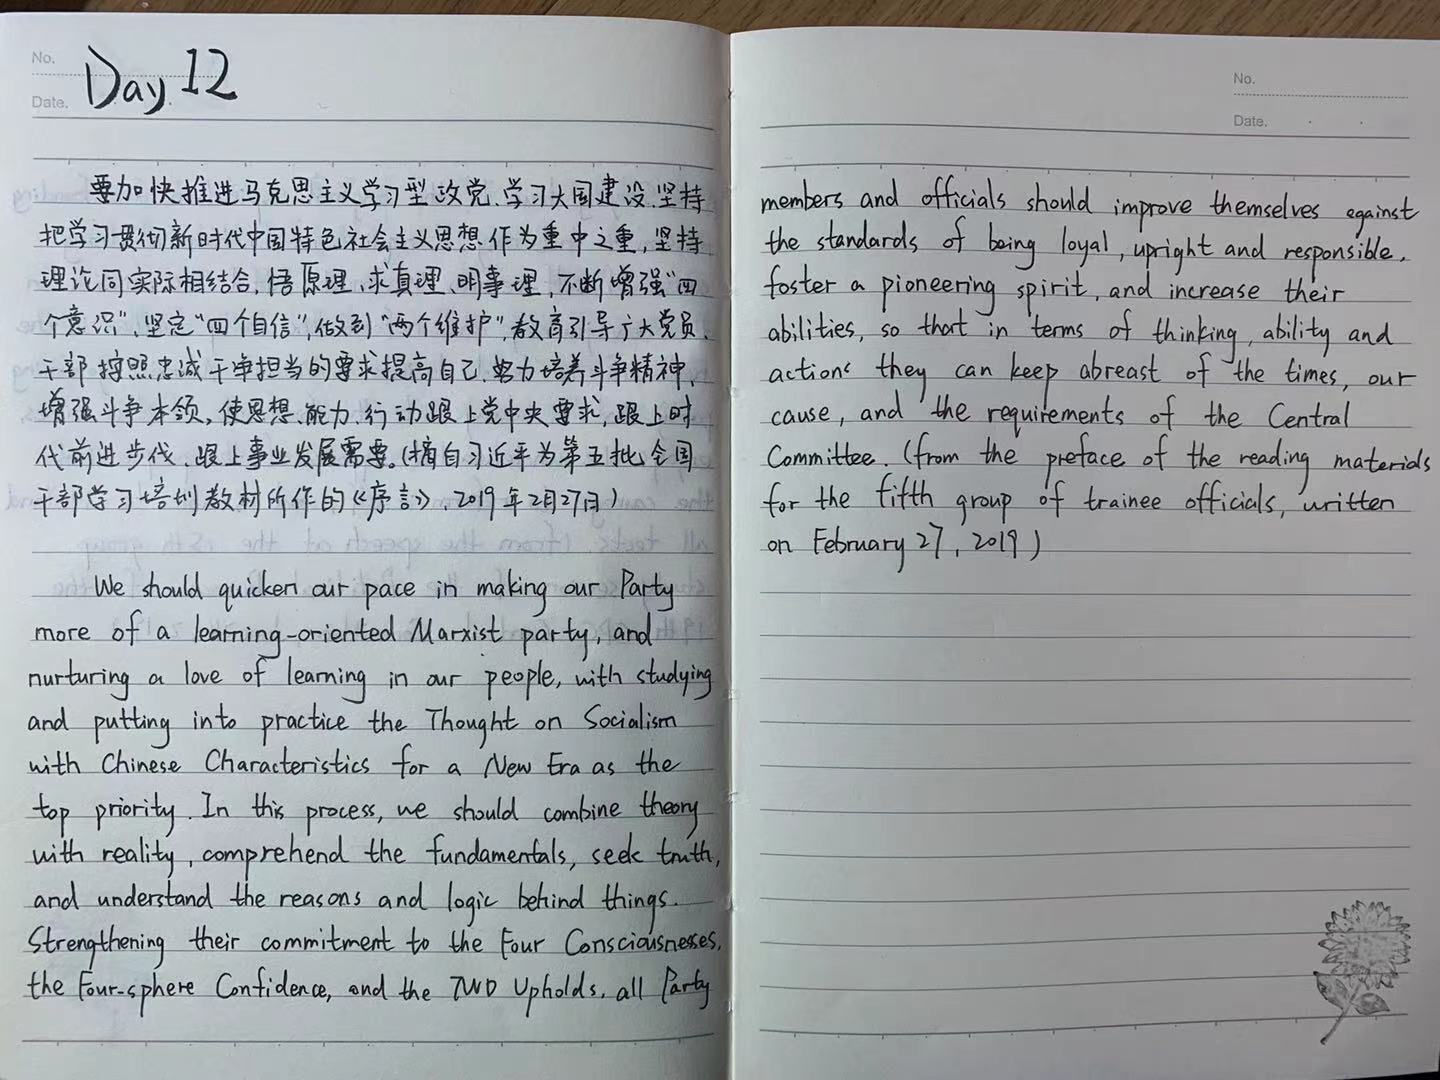 No.
Date.
Day 12
要加快推进马克思主义学习型政党、学习大国建设，坚持
把学习贯彻新时代中国特色社会主义思想作为重中之重，坚持
理论同实际相结合，悟原理、求真理、明事理，不断增强“四
个意识”、坚定“四个自信”，做到“两个维护”，教育引导广大党员、
干部按照忠诚干净担当的要求提高自己，努力培养斗争精神、
增强斗争本领，使思想、能力、行动跟上党中央要求，跟上时
代前进步伐、跟上事业发展需要。（摘自习近平为第五批全国
干部学习培训教材所作的《序言》，2019年2月27日）
We should quicken our pace in making our Party
more of a learning-oriented Marxist party, and
nurturing a love of learning in our people, with studying
and putting into practice the Thought on Socialism
with Chinese Characteristics for a New Era as the
top priority. In this process, we should combine theory
with reality, comprehend the fundamentals, seek truth,
and understand the reasons and logic behind things.
Strengthening their commitment to the Four Consciousnesses,
the Four-sphere Confidence, and the Two Upholds, all Party
No.
Date.
members and officials should improve themselves against
the standards of being loyal, upright and responsible,
foster a pioneering spirit, and increase their
abilities, so that in terms of thinking, ability and
actions they can keep abreast of the times, our
cause, and the requirements of the Central
Committee. (from the preface of the reading materials
for the fifth group of trainee officials, written
on February 27, 2019)